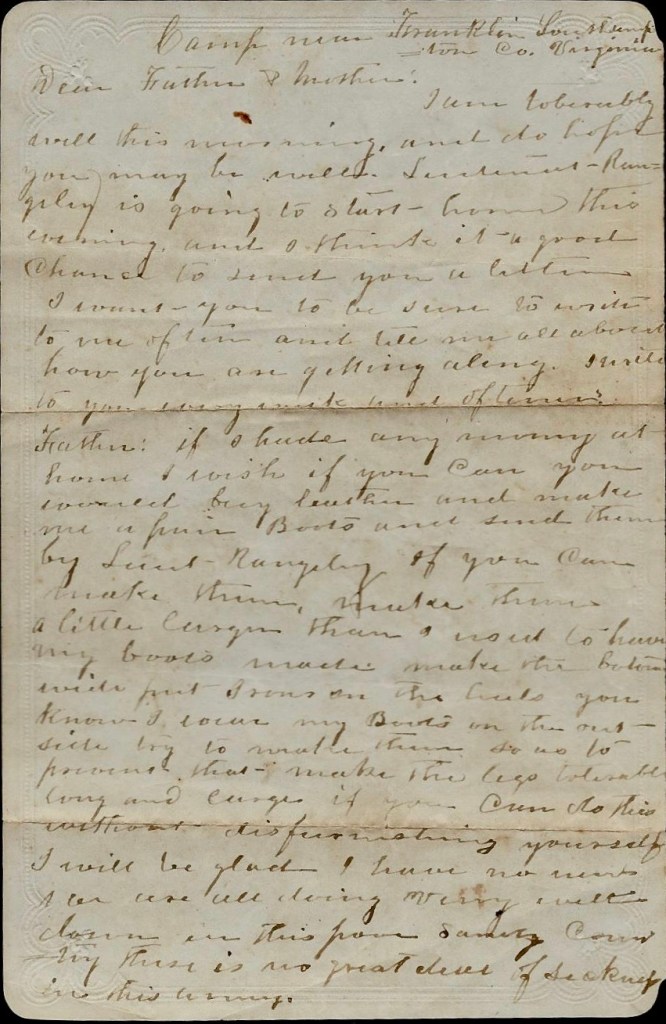 Camp near Franklin Southamp
-ton Co. Virginia
Dear Father & Mother:
I am tolerably
well this morning, and do hope
you may be well. Lieutenant Ran-
geley is going to start home this
evening, and I think it a good
chance to send you a letter
I want you to be sure to write
to me often and tell me all about
how you are getting along. I write
to you every week and oftener.
Father: if I hade any money at
home I wish if you can you
would buy leather and make
me a pair Boots and send them
by Lieut Rangeley if you can
make them, make them
a little larger than I used to have
my boots made. make the botom
wide put Irons on the heels you
know I wear my Boots on the out-
side try to make them so as to
prevent that. make the legs tolerable
long and large if you can do this
without disfurnishing yourself
I will be glad I have no news
we are all doing very well
down in this poor Sandy Coun
-try there is no great deal of sickness
in this army.